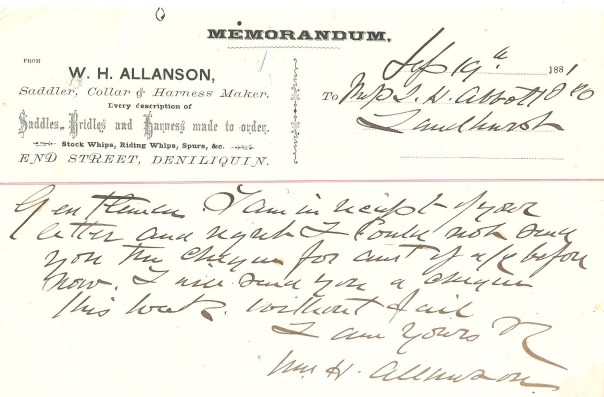 MEMORANDUM.
FROM
W. H. ALLANSON,
Saddler, Collar & Harness Maker.
Every description of
Saddles, Bridles and Harness made to order.
Stock Whips, Riding Whips, Spurs, &c.
END STREET, DENILIQUIN.
Sep 19th 1881
To Messrs J. H. Abbott & Co
Sandhurst
Gentlemen I am in receipt of your
letter and regret I could not send
you the cheque for amt of a/c before
now. I will send you a cheque
this week without fail
I am yours
Wm. H. Allanson